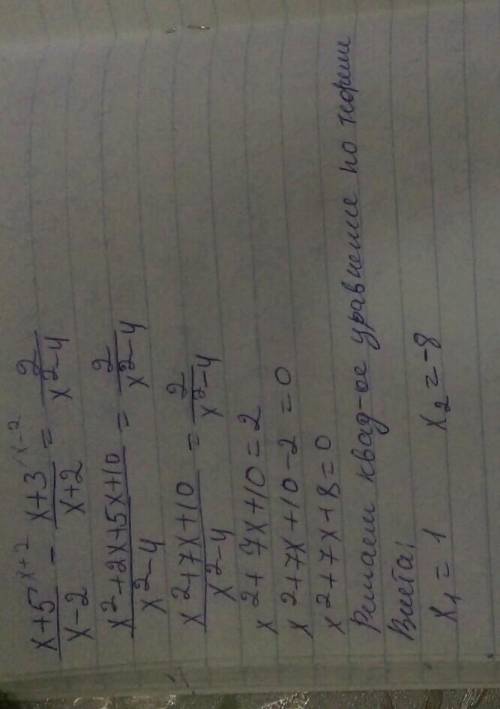 (x+5)^{x+2}/(x-2) - (x+3)^{x-2}/(x+2) = 2/(x²-4)
(x²+2x+5x+10)/(x²-4) = 2/(x²-4)
(x²+7x+10)/(x²-4) = 2/(x²-4)
x²+7x+10=2
x²+7x+10-2=0
x²+7x+8=0
Решаем квад-ое уравнение по теореме
Виета;
x₁=1 x₂=-8